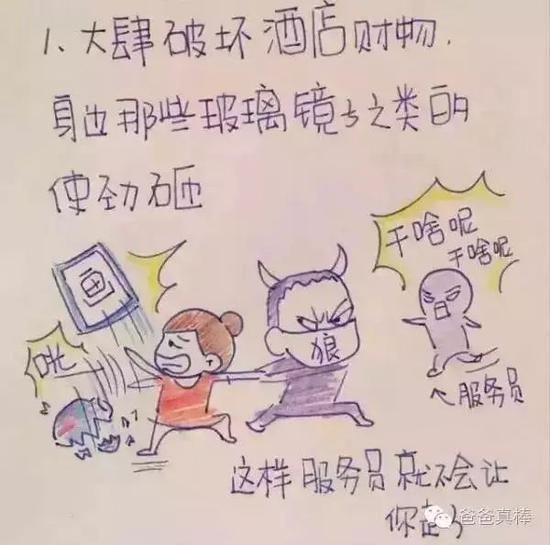 1、大肆破坏酒店财物.
身边那些玻璃镜子之类的
使劲砸
画
咣
狼
干啥呢
干啥呢
服务员
这样服务员就不会让
你走了
爸爸真棒